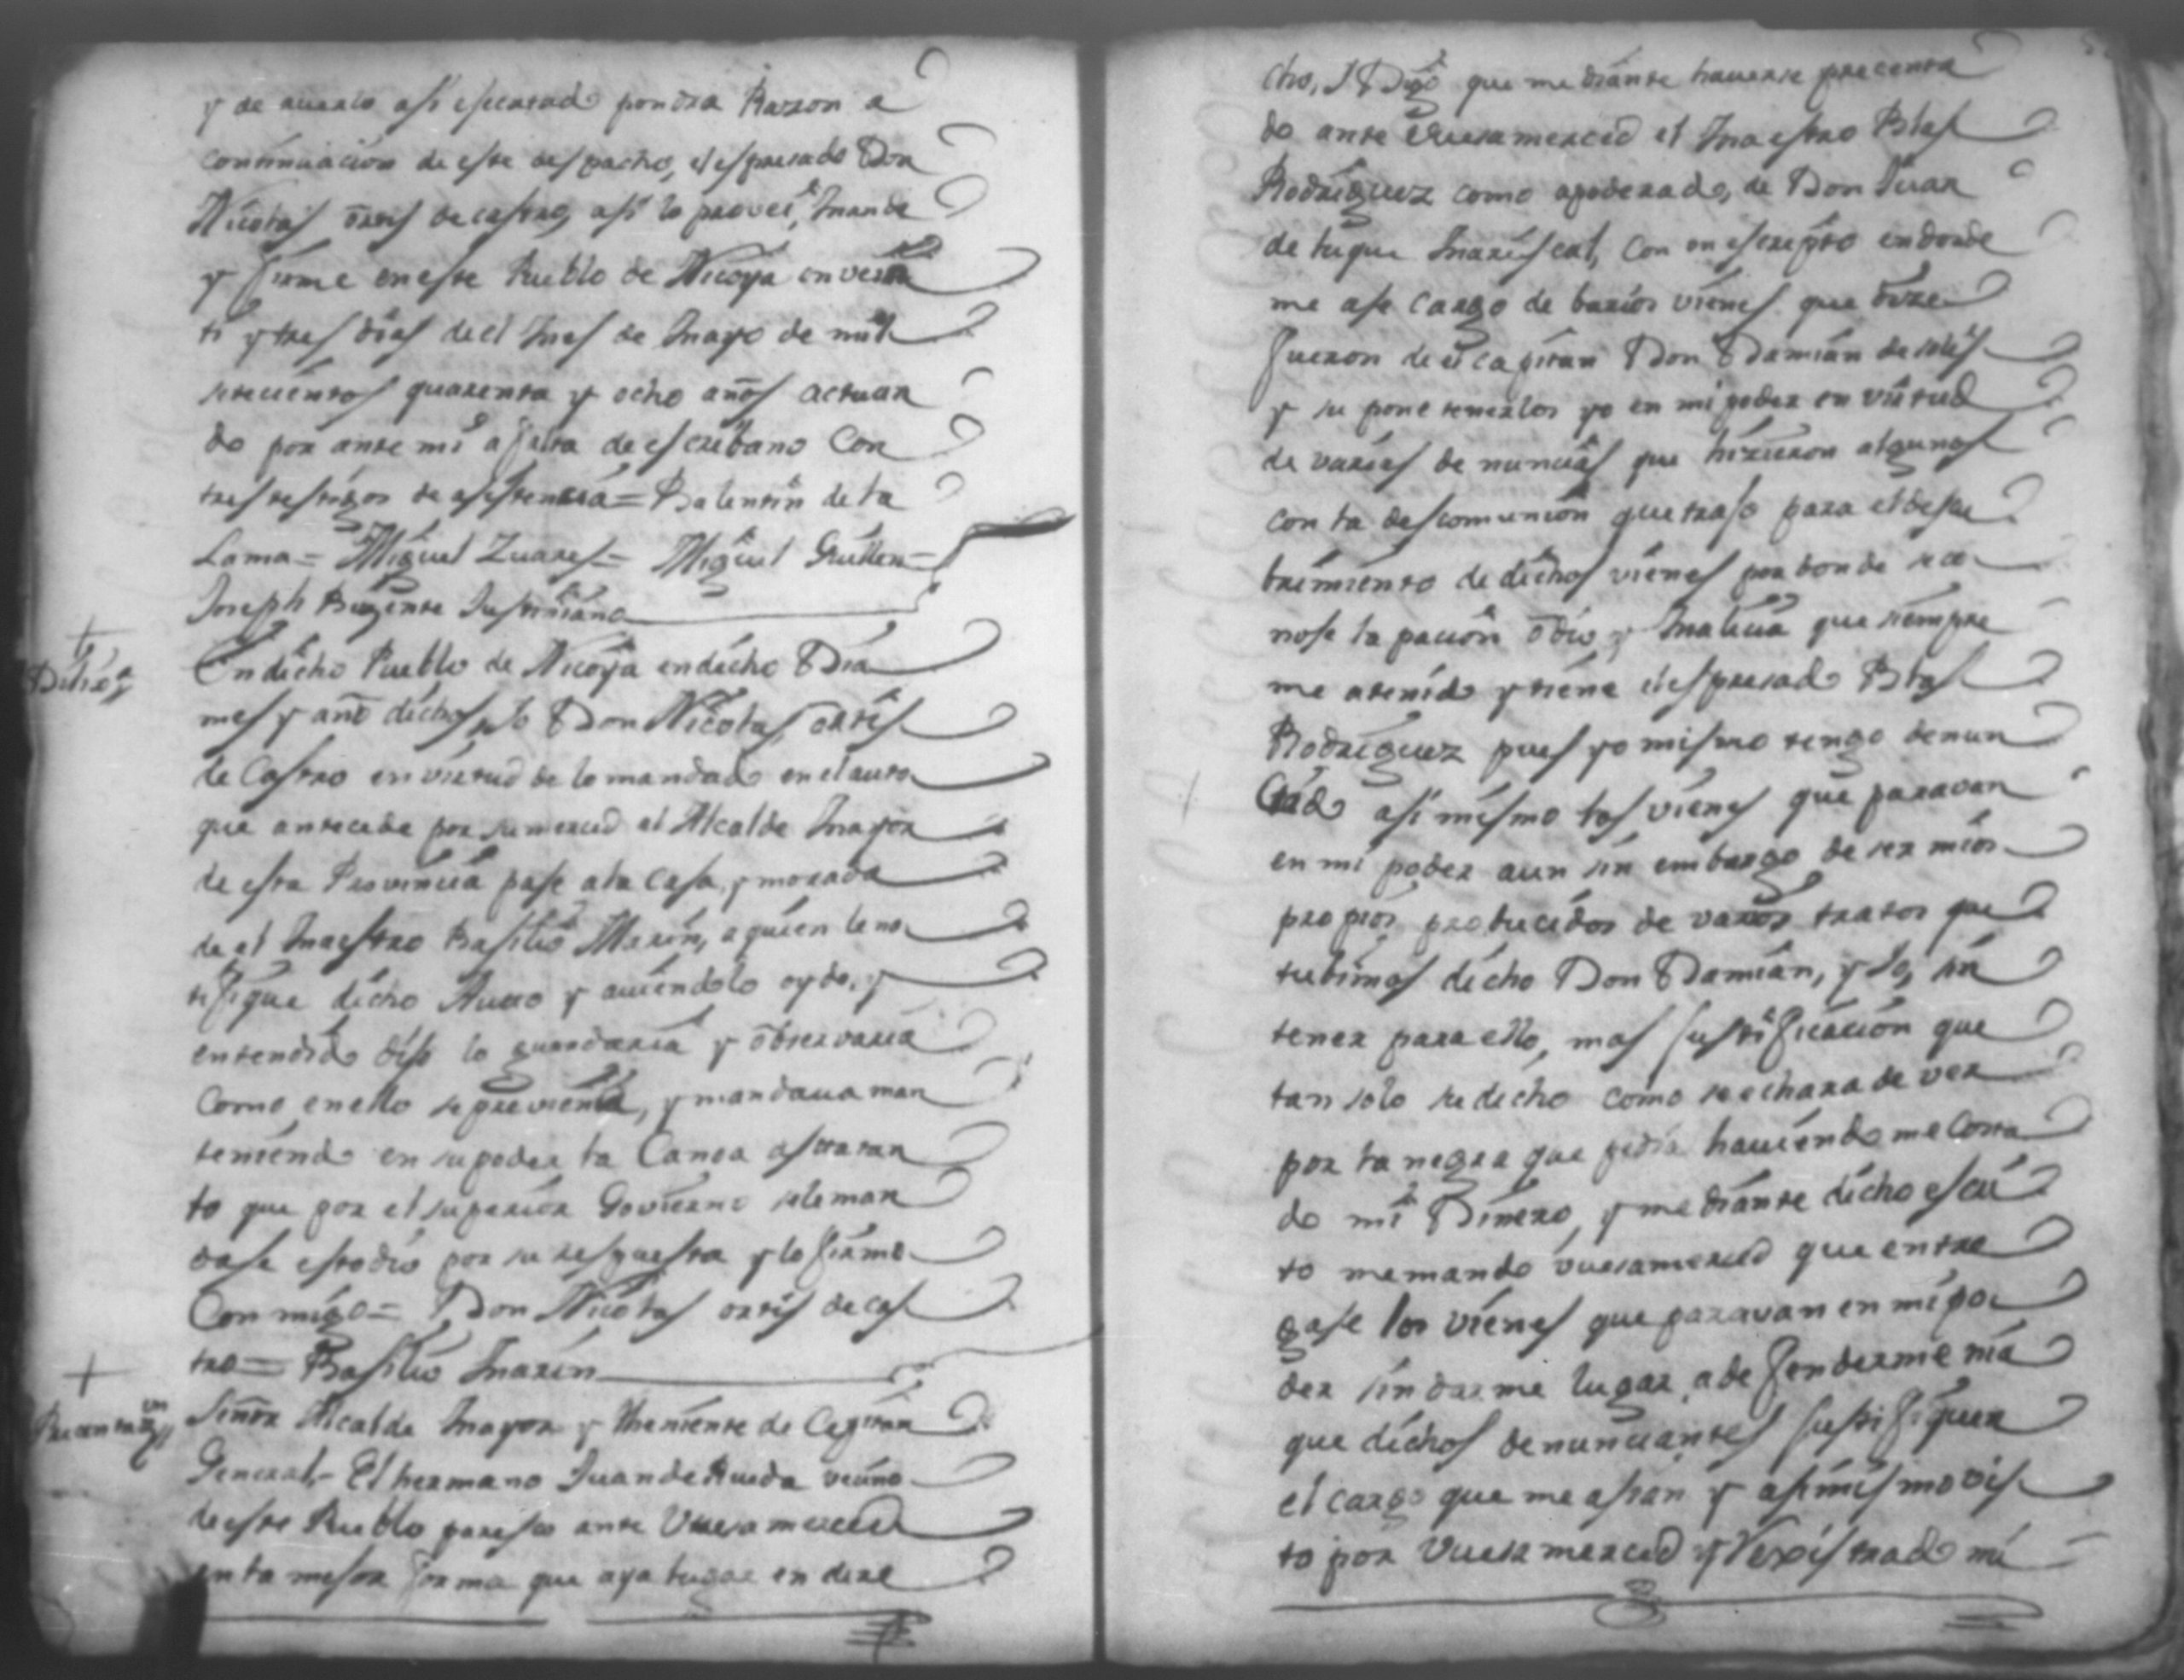 y de auerlo asi esecutado pondra Razon a
continuacion de este despacho, el espresado Don
Nicolas ortis de castro, asi lo provei, mande
y firme en este Pueblo de Nicoya en vein
ti y tres dias de el mes de mayo de mil
setecientos quarenta y ocho años actuan
do por ante mi a falta de escribano Con
tres testigos de asistencia = Balentin de la
Lama = Miguel Zuares = Miguel Guillen =
Joseph Bizente Justiniano
En dicho Pueblo de Nicoya en dicho Dia
mes y año dichos, Yo Don Nicolas ortis
de Castro en virtud de lo mandado en el auto
que antecede por su merced el Alcalde mayor
de esta Provincia pase a la casa y morada
de el maestro Basilio Marin, a quien le no
tifique dicho Auto y auiendolo oydo, y
entendido diso lo guardaria y observaria
Como en ello se previene, y mandaua man
teniendo en su poder la Canoa asta tan
to que por el superior Govierno se le man
dase esto dio por su respuesta y lo firmo
Con migo = Don Nicolas ortis de cas
tro = Basilio marin
Señor Alcalde mayor y theniente de Capitan
General = El hermano Juan de Rueda vecino
de este Pueblo paresco ante Vuesa merced
en la mejor forma que aya lugar en dere
cho, Y Digo que mediante hauerse precenta
do ante Vuesamerced el maestro Blas
Rodriguez como apoderado, de Don Juan
de mariscal, Con un escripto en donde
me ase cargo de barios vienes que dize
fueron de el capitan Don Damian de
y supone tenerlos yo en mi poder en virtud
de varias denuncias que hizieron algunos
con la descomunion que traso para el descu
brimiento de dichos vienes por donde se co
nose la pacion odio y malicia que siempre
me a tenido y tiene el espresado Blas
Rodriguez pues yo mismo tengo denun
ciado asi mismo los vienes que paravan
en mi poder aun sin embargo de ser mios
propios producidos de varios tratos que
tubimos dicho Don Damian, y Yo, sin
tener para ello, mas justificacion que
tan solo su dicho como se echara de ver
por la negra que pedia hauiendome Costa
do mi Dinero, y mediante dicho escri
to me mando vuesamerced que entre
gase los vienes que paravan en mi po
der sin darme lugar a defenderme ni a
que dichos denunciantes justifiquen
el cargo que me asian y asi mismo vis
to por Vuesa merced y Rexistrado mi